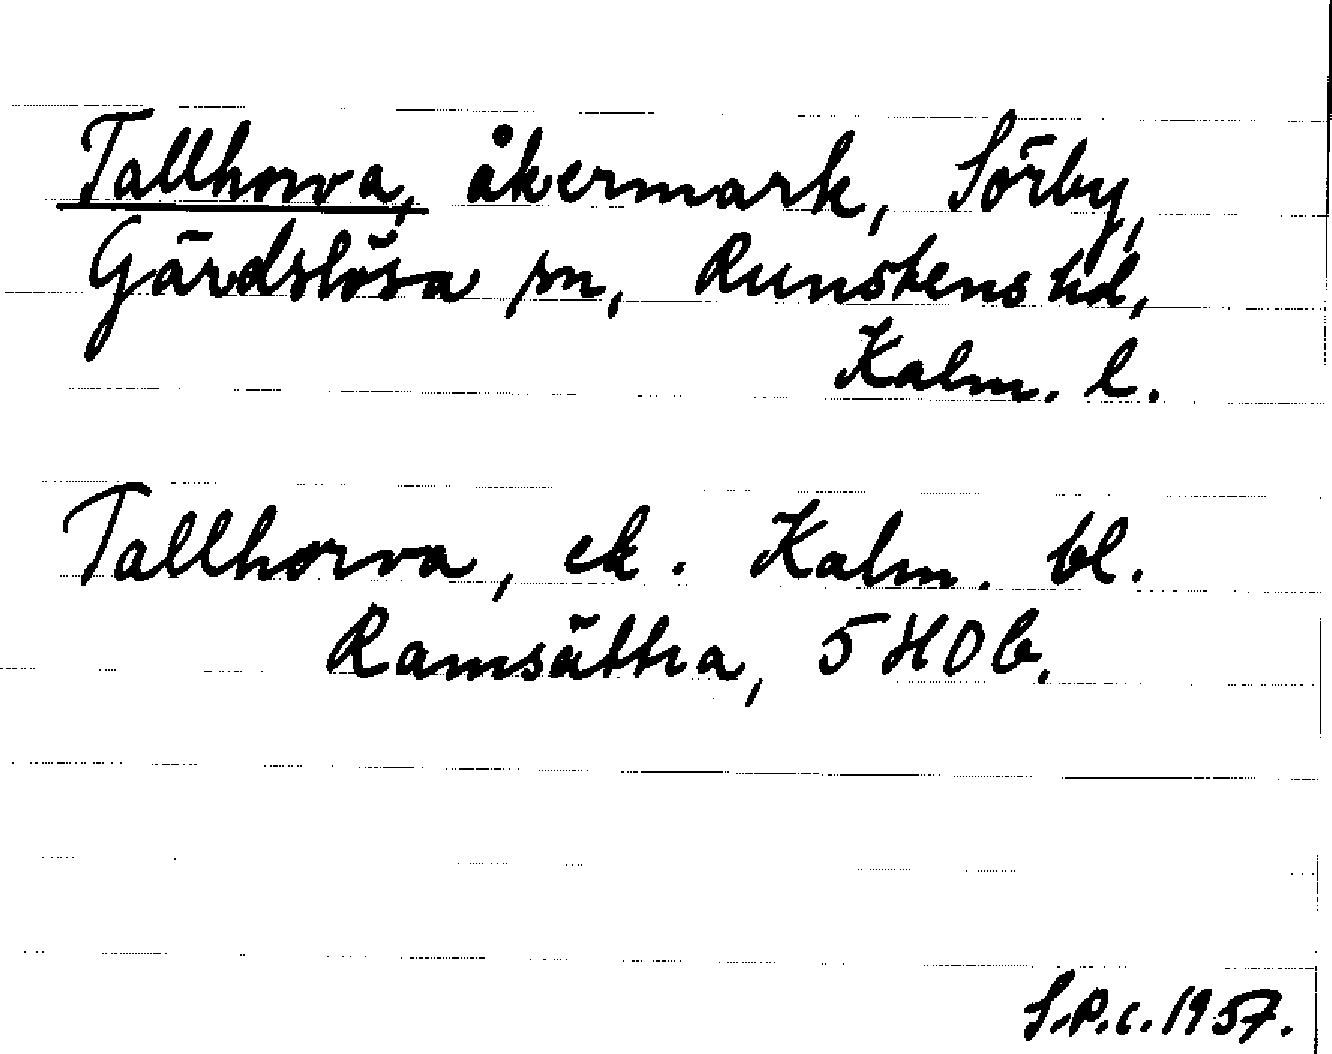 Tallhorva, åkermark, Sörby,
Gärdslösa sn, Runstens hd,
Kalm. l.
Tallhorva, ek. Kalm. bl.
Ramsättra, 5 H 0 b.
S.P.C. 1957.